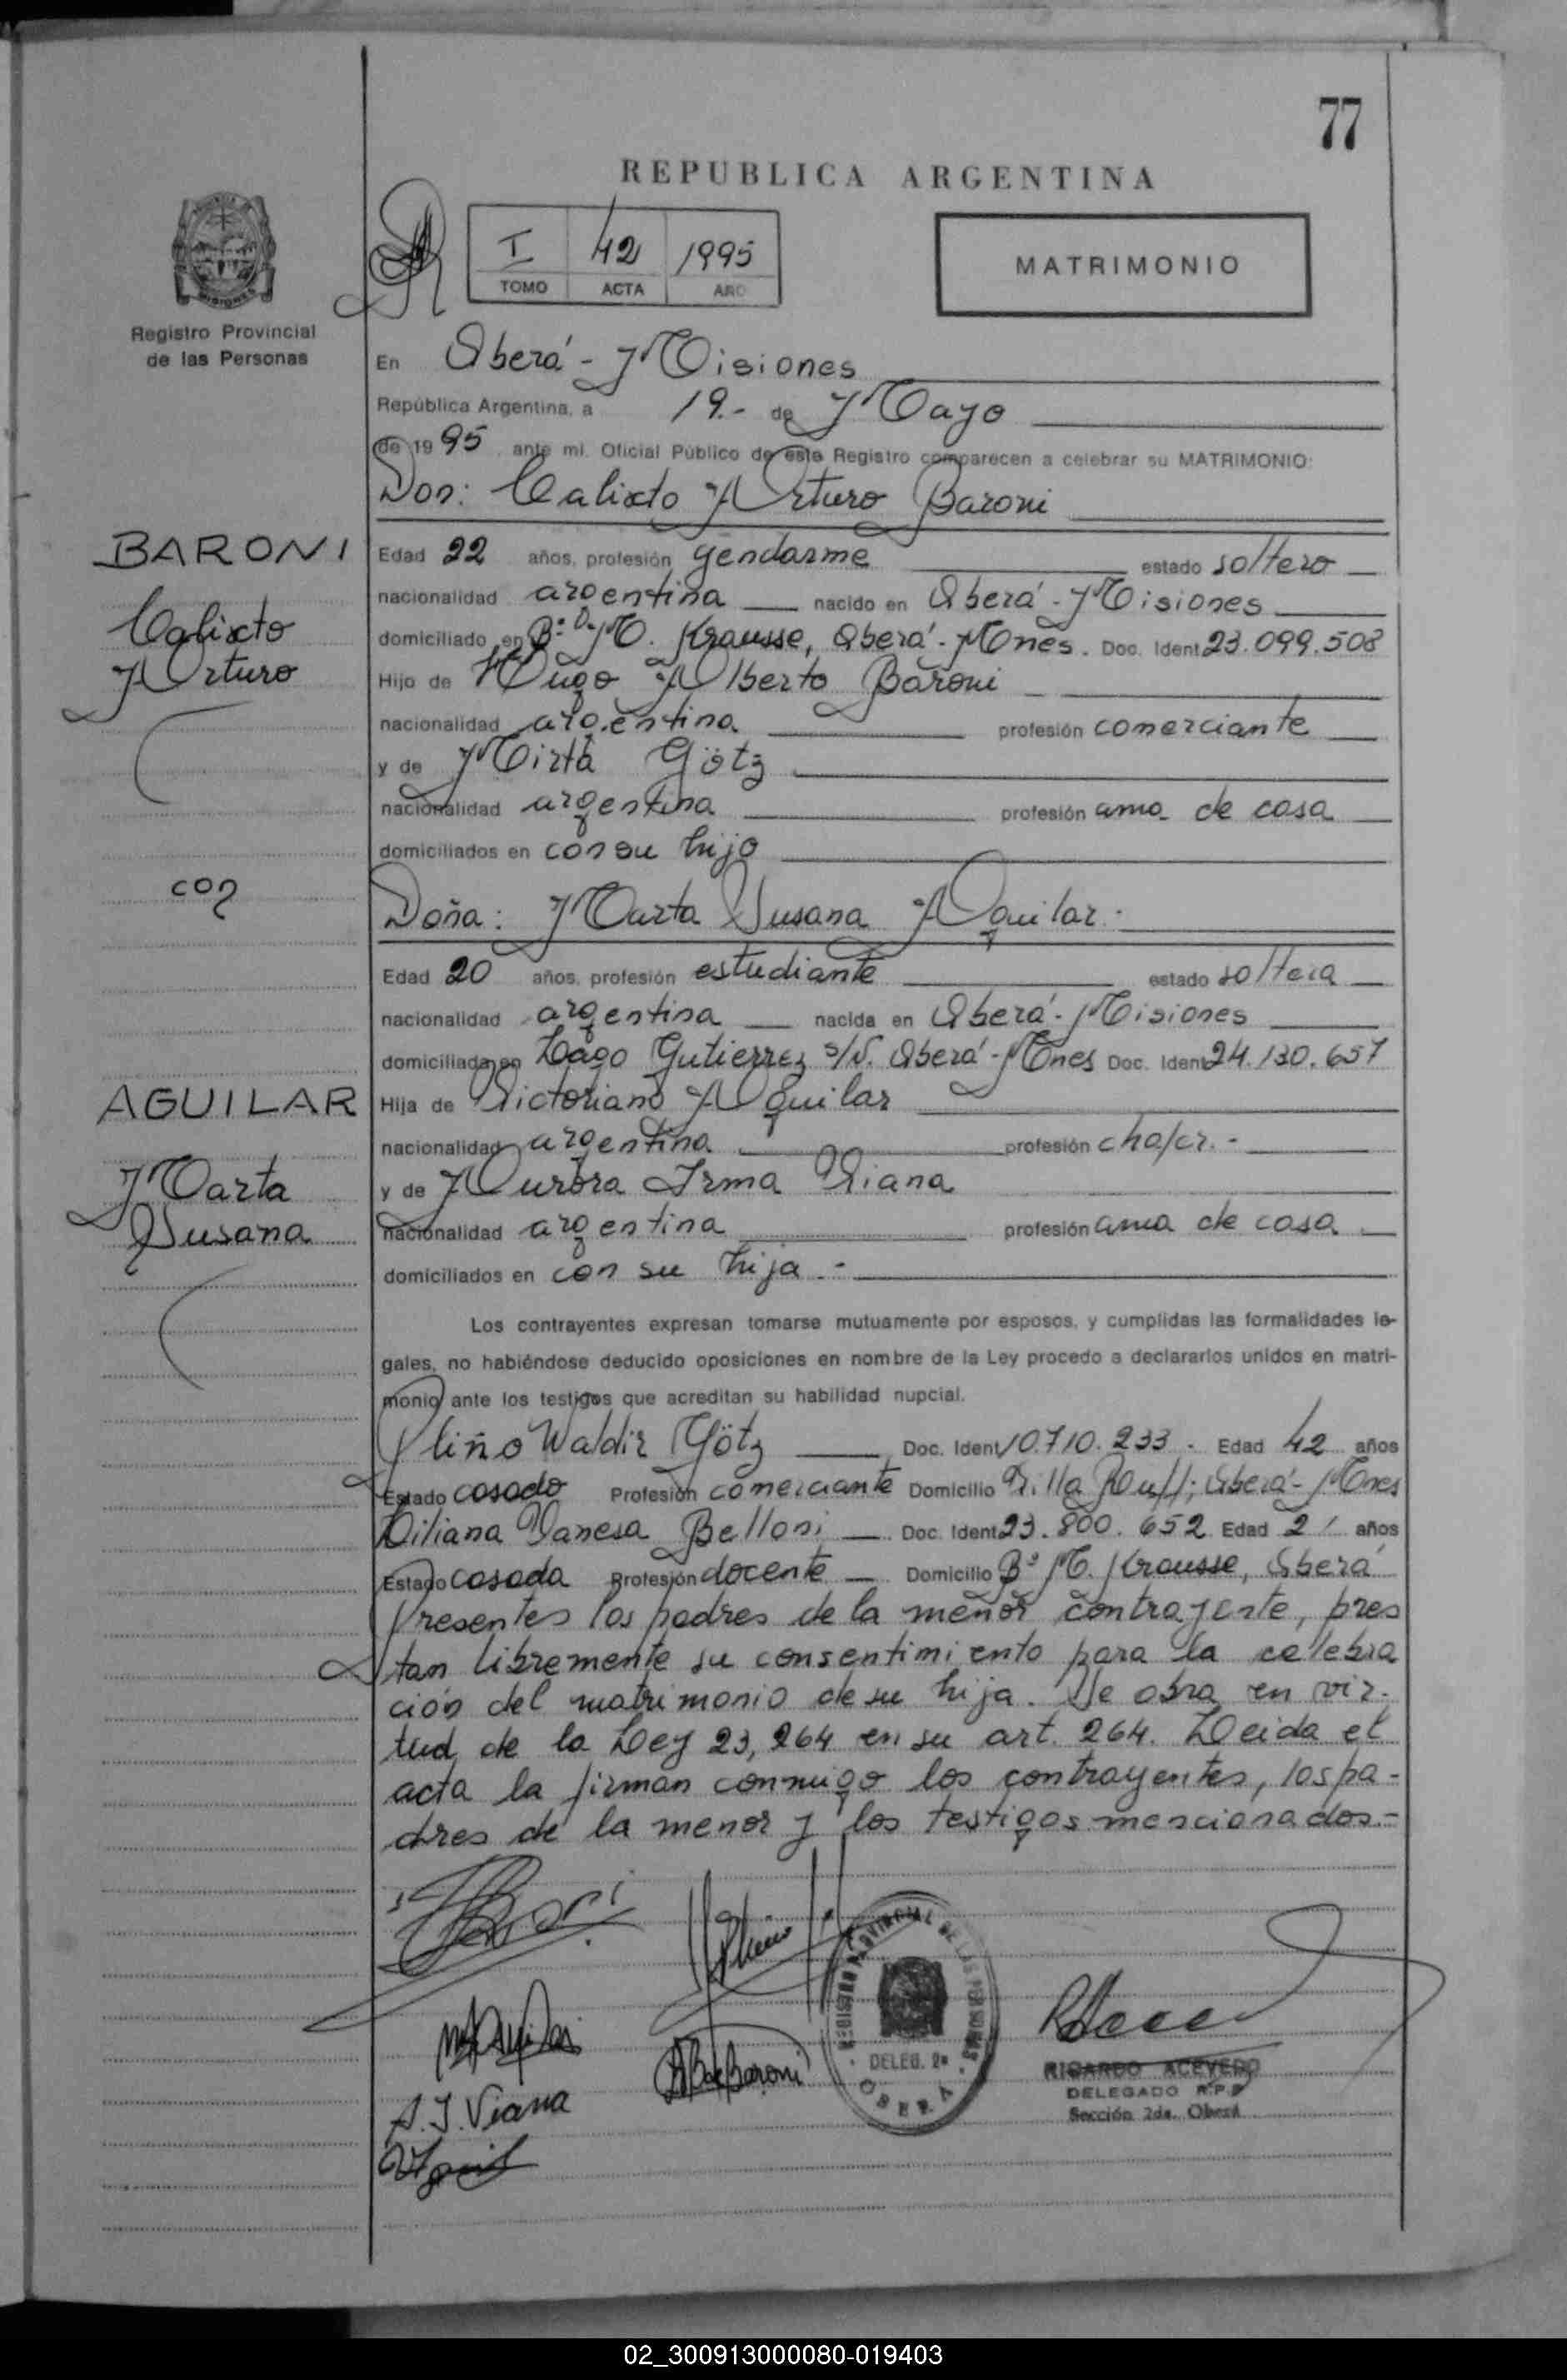 77
REPUBLICA ARGENTINA
I 42 1995
TOMO ACTA AÑO
MATRIMONIO
Registro Provincial
de las Personas
En Oberá - Misiones
República Argentina, a 19.- de Mayo
de 1995, ante mi, Oficial Público de este Registro comparecen a celebrar su MATRIMONIO:
Don: Calixto Arturo Baroni
BARONI
Calixto
Arturo
con
AGUILAR
Marta
Susana
Edad 22 años, profesión gendarme estado soltero
nacionalidad argentina nacido en Oberá - Misiones
domiciliado en Bº O. M. Krausse, Oberá - Mnes. Doc. Ident 23.099.508
Hijo de Hugo Alberto Baroni
nacionalidad argentina profesión comerciante
y de Mirta Götz
nacionalidad argentina profesión ama de casa
domiciliados en con su hijo
Doña: Marta Susana Aguilar.-
Edad 20 años, profesión estudiante estado soltera
nacionalidad argentina nacida en Oberá - Misiones
domiciliada en Lago Gutierrez s/N. Oberá - Mnes Doc. Ident 24.130.657
Hija de Victoriano Aguilar
nacionalidad argentina profesión
y de Aurora Irma Viana
nacionalidad argentina profesión ama de casa
domiciliados en con su hija.-
Los contrayentes expresan tomarse mutuamente por esposos, y cumplidas las formalidades le-
gales, no habiéndose deducido oposiciones en nombre de la Ley procedo a declararlos unidos en matri-
monio ante los testigos que acreditan su habilidad nupcial.
Plinio Waldir Götz Doc. Ident 10.710.233. Edad 42 años
Estado casado Profesión comerciante Domicilio Villa Oberá - Mnes
Liliana Vanesa Belloni Doc. Ident 23.800.652 Edad 21 años
Estado casada Profesión docente Domicilio Bº M. Krausse, Oberá
Presentes los padres de la menor contrayente, pres
tan libremente su consentimiento para la celebra
ción del matrimonio de su hija. Se obra en vir-
tud de la Ley 23,264 en su art. 264. Leida el
acta la firman conmigo los contrayentes, los pa-
dres de la menor y los testigos mencionados.-
REGISTRO PROVINCIAL DE LAS PERSONAS
DELEG. 2ª
OBERA
A. I. Viana
RICARDO ACEVEDO
DELEGADO R.P.P
Sección 2da. Oberá
02_300913000080-019403